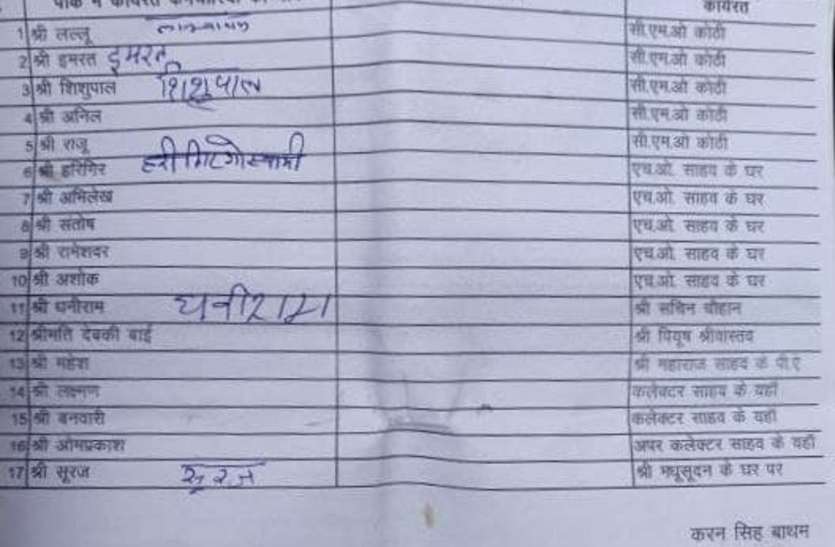 पार्क में कार्यरत कर्मचारियों कार्यरत
1 श्री लल्लू सी.एम.ओ कोठी
2 श्री इमरत इमरत सी.एम.ओ कोठी
3 श्री शिशुपाल शिशुपाल सी.एम.ओ कोठी
4 श्री अनिल सी.एम.ओ कोठी
5 श्री राजू सी.एम.ओ कोठी
6 श्री हरिगिर हरीगिर गोस्वामी एच.ओ. साहव के घर
7 श्री अभिलेख एच.ओ. साहव के घर
8 श्री संतोष एच.ओ. साहव के घर
9 श्री रामेशवर एच.ओ. साहव के घर
10 श्री अशोक एच.ओ. साहव के घर
11 श्री धनीराम धनीराम श्री सचिन चौहान
12 श्रीमति देवकी बाई श्री पियूष श्रीवास्तव
13 श्री महेश श्री महाराज साहव के पी.ए
14 श्री लक्ष्मण कलेक्टर साहव के यहाँ
15 श्री बनवारी कलेक्टर साहव के यहाँ
16 श्री ओमप्रकाश अपर कलेक्टर साहव के यहाँ
17 श्री सूरज सूरज श्री मधूसूदन के घर पर
करन सिह बाथम